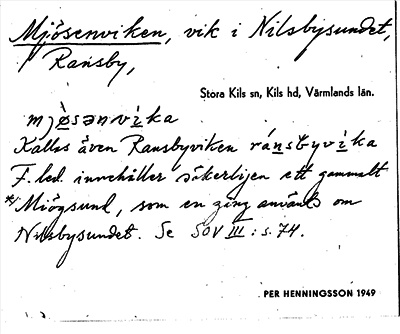 Mjösenviken, vik i Nilsbysundet,
Ransby,
Stora Kils sn, Kils hd, Värmlands län.
mjø̀sənvìka
Kallas även Ransbyviken ránsbyvìka
F. led. innehåller säkerligen ett gammalt
*Miögsund, som en gång använts om
Nilsbysundet. Se SOV III: s. 74.
PER HENNINGSSON 1949